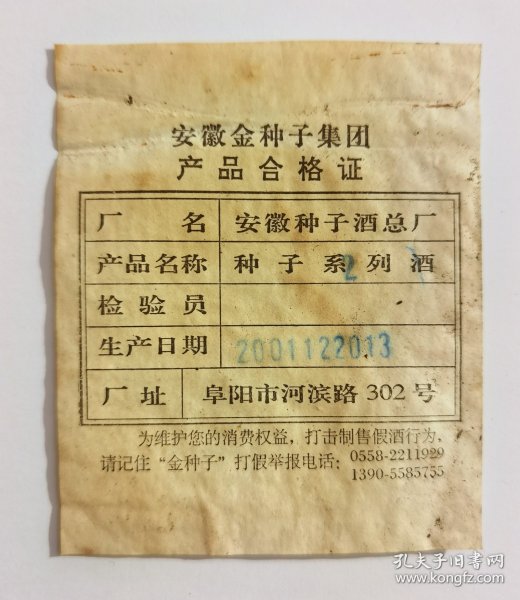 安徽金种子集团
产品合格证
厂 名 安徽种子酒总厂
产品名称 种子系列酒
2
检验员
生产日期 2001122013
厂址 阜阳市河滨路302号
为维护您的消费权益，打击制售假酒行为，
请记住“金种子”打假举报电话：0558-2211929
1390-5585755
孔夫子旧书网
www.kongfz.com